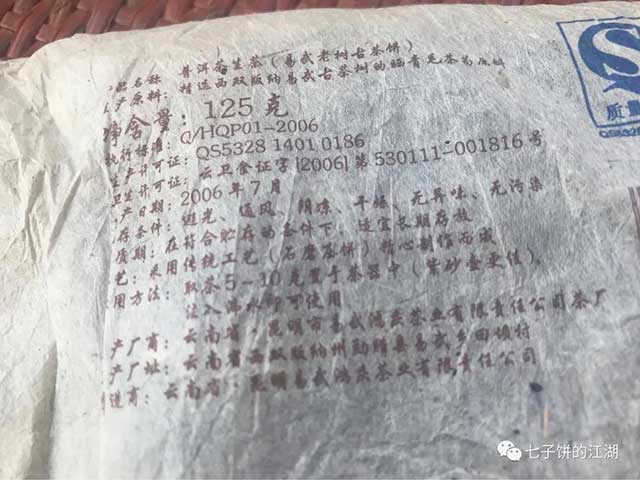 品名称：普洱茶生茶（易武老树古茶饼）
生产原料：精选西双版纳易武古茶树的晒青毛茶为原料
净含量：125克
执行标准：Q/HQP01-2006
生产许可证：QS5328 1401 0186
卫生许可证：云卫食证字[2006]第530111-001816号
产日期：2006年7月
存条件：避光、通风、阴凉、干燥、无异味、无污染
质期：在符合贮存的条件下，适宜长期存放
艺：采用传统工艺（石磨茶饼）精心制作而成
用方法：取茶5-10克置于茶器中（紫砂壶更佳），
注入沸水即可使用
产厂商：云南省·昆明市易武鸿杰茶业有限责任公司茶厂
产厂址：云南省西双版纳州勐腊县易武乡田坝村
造商：云南省·昆明易武鸿杰茶业有限责任公司
质量
QS5328
七子饼的江湖